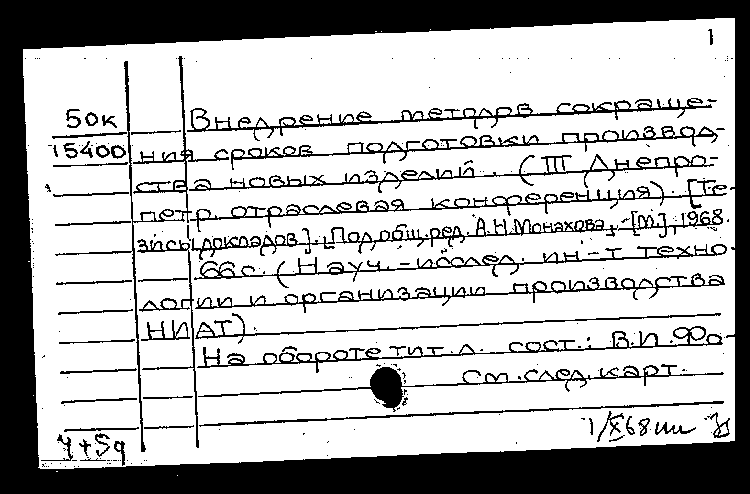 1
50к Внедрение методов сокраще-
15400 ния сроков подготовки производ-
ства новых изделий. (III Днепро-
петр. отраслевая конференция). [Те-
зисы докладов]. Под общ. ред. А.Н. Монахова. [М], 1968.
66 с. (Науч.-исслед. ин-т техно-
логии и организации производства
НИАТ).
На обороте тит. л. сост.: В.И. Фо-
См. след. карт.
1/X68